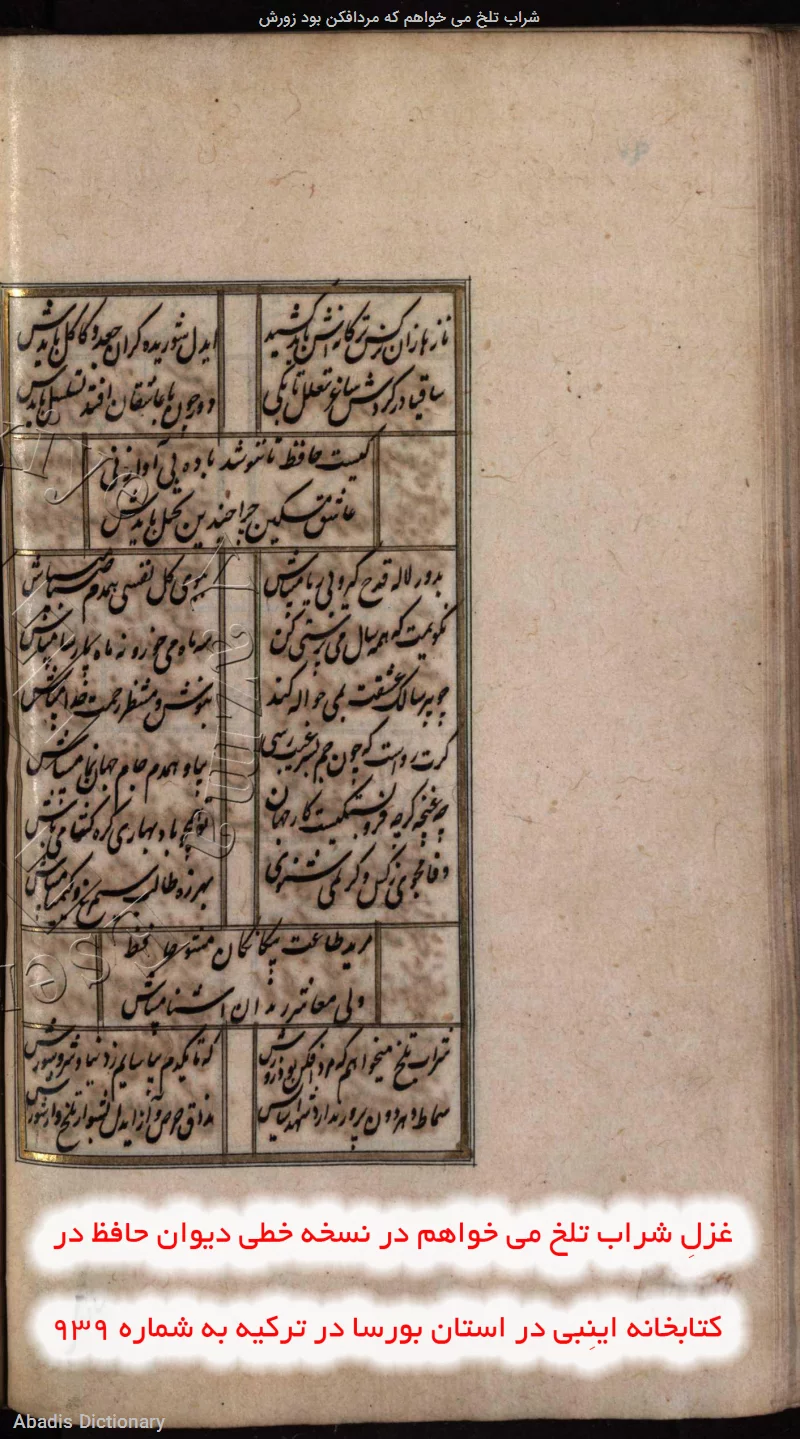 شراب تلخ می خواهم که مردافکن بود زورش
ناز هازان نرکس ترکانه‌اش باید کشید
ایدل شوریده کران جعد و کاکل بایدش
ساقیا در کردش ساغر تعلل تا بکی
دور چون با عاشقان افتد تسلسل بایدش
کیست حافظ تا ننوشد باده بی آواز نی
عاشق مسکین چرا چندین تحمل بایدش
بدور لاله قدح کیر و بی ریا میباش
ببوی کل نفسی همدم صبا میباش
نکویمت که همه سال می پرستی کن
سه ماه می خور و نه ماه پارسا میباش
چو پیر سالک عشقت بمی حواله کند
بنوش و منتظر رحمت خدا میباش
کرت رواست که چون جم بسر غیب رسی
بیا و همدم جام جهان نما میباش
چو غنچه کرچه فروبستکیست کار جهان
تو همچو باد بهاری کره کشا میباش
وفا مجوی ز کس ور کر نمی شنوی
بهرزه طالب سیمرغ و کیمیا میباش
مرید طاعت بیکانکان مشو حافظ
ولی معاشر رندان آشنا میباش
شراب تلخ میخواهم که مردافکن بود زورش
که تا یکدم بیاسایم ز دنیا و شر و شورش
سماط دهر دون پرور ندارد شهد آسایش
مذاق حرص و آز ایدل بشو از تلخ و از شورش
غزلِ شراب تلخ می خواهم در نسخه خطی دیوان حافظ در
کتابخانه اینِبی در استان بورسا در ترکیه به شماره ۹۳۹
Abadis Dictionary